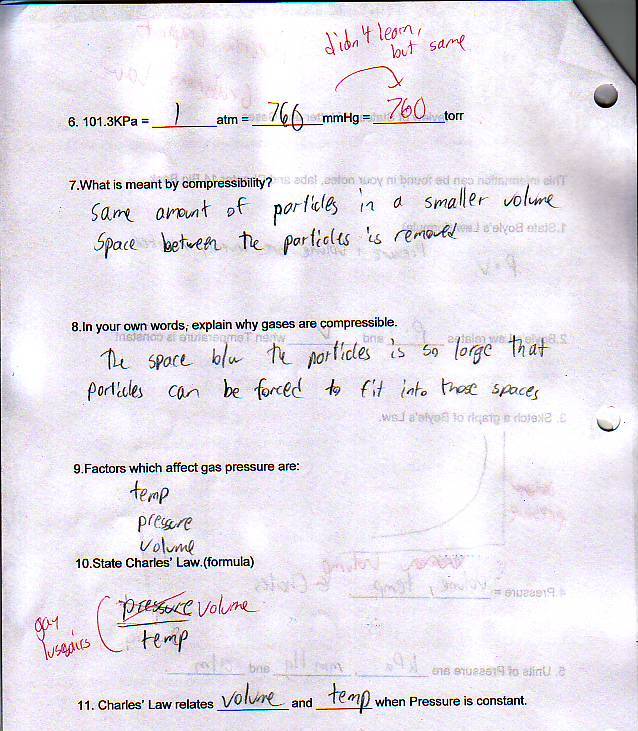 didn't learn,
but same
6. 101.3KPa = 1 atm = 760 mmHg = 760 torr
7.What is meant by compressibility?
Same amount of particles in a smaller volume
Space between the particles is removed
8.In your own words, explain why gases are compressible.
The space b/w the particles is so large that
particles can be forced to fit into those spaces
9.Factors which affect gas pressure are:
temp
pressure
volume
10.State Charles' Law.(formula)
pressure volume
gay
lussairs
temp
11. Charles' Law relates volume and temp when Pressure is constant.